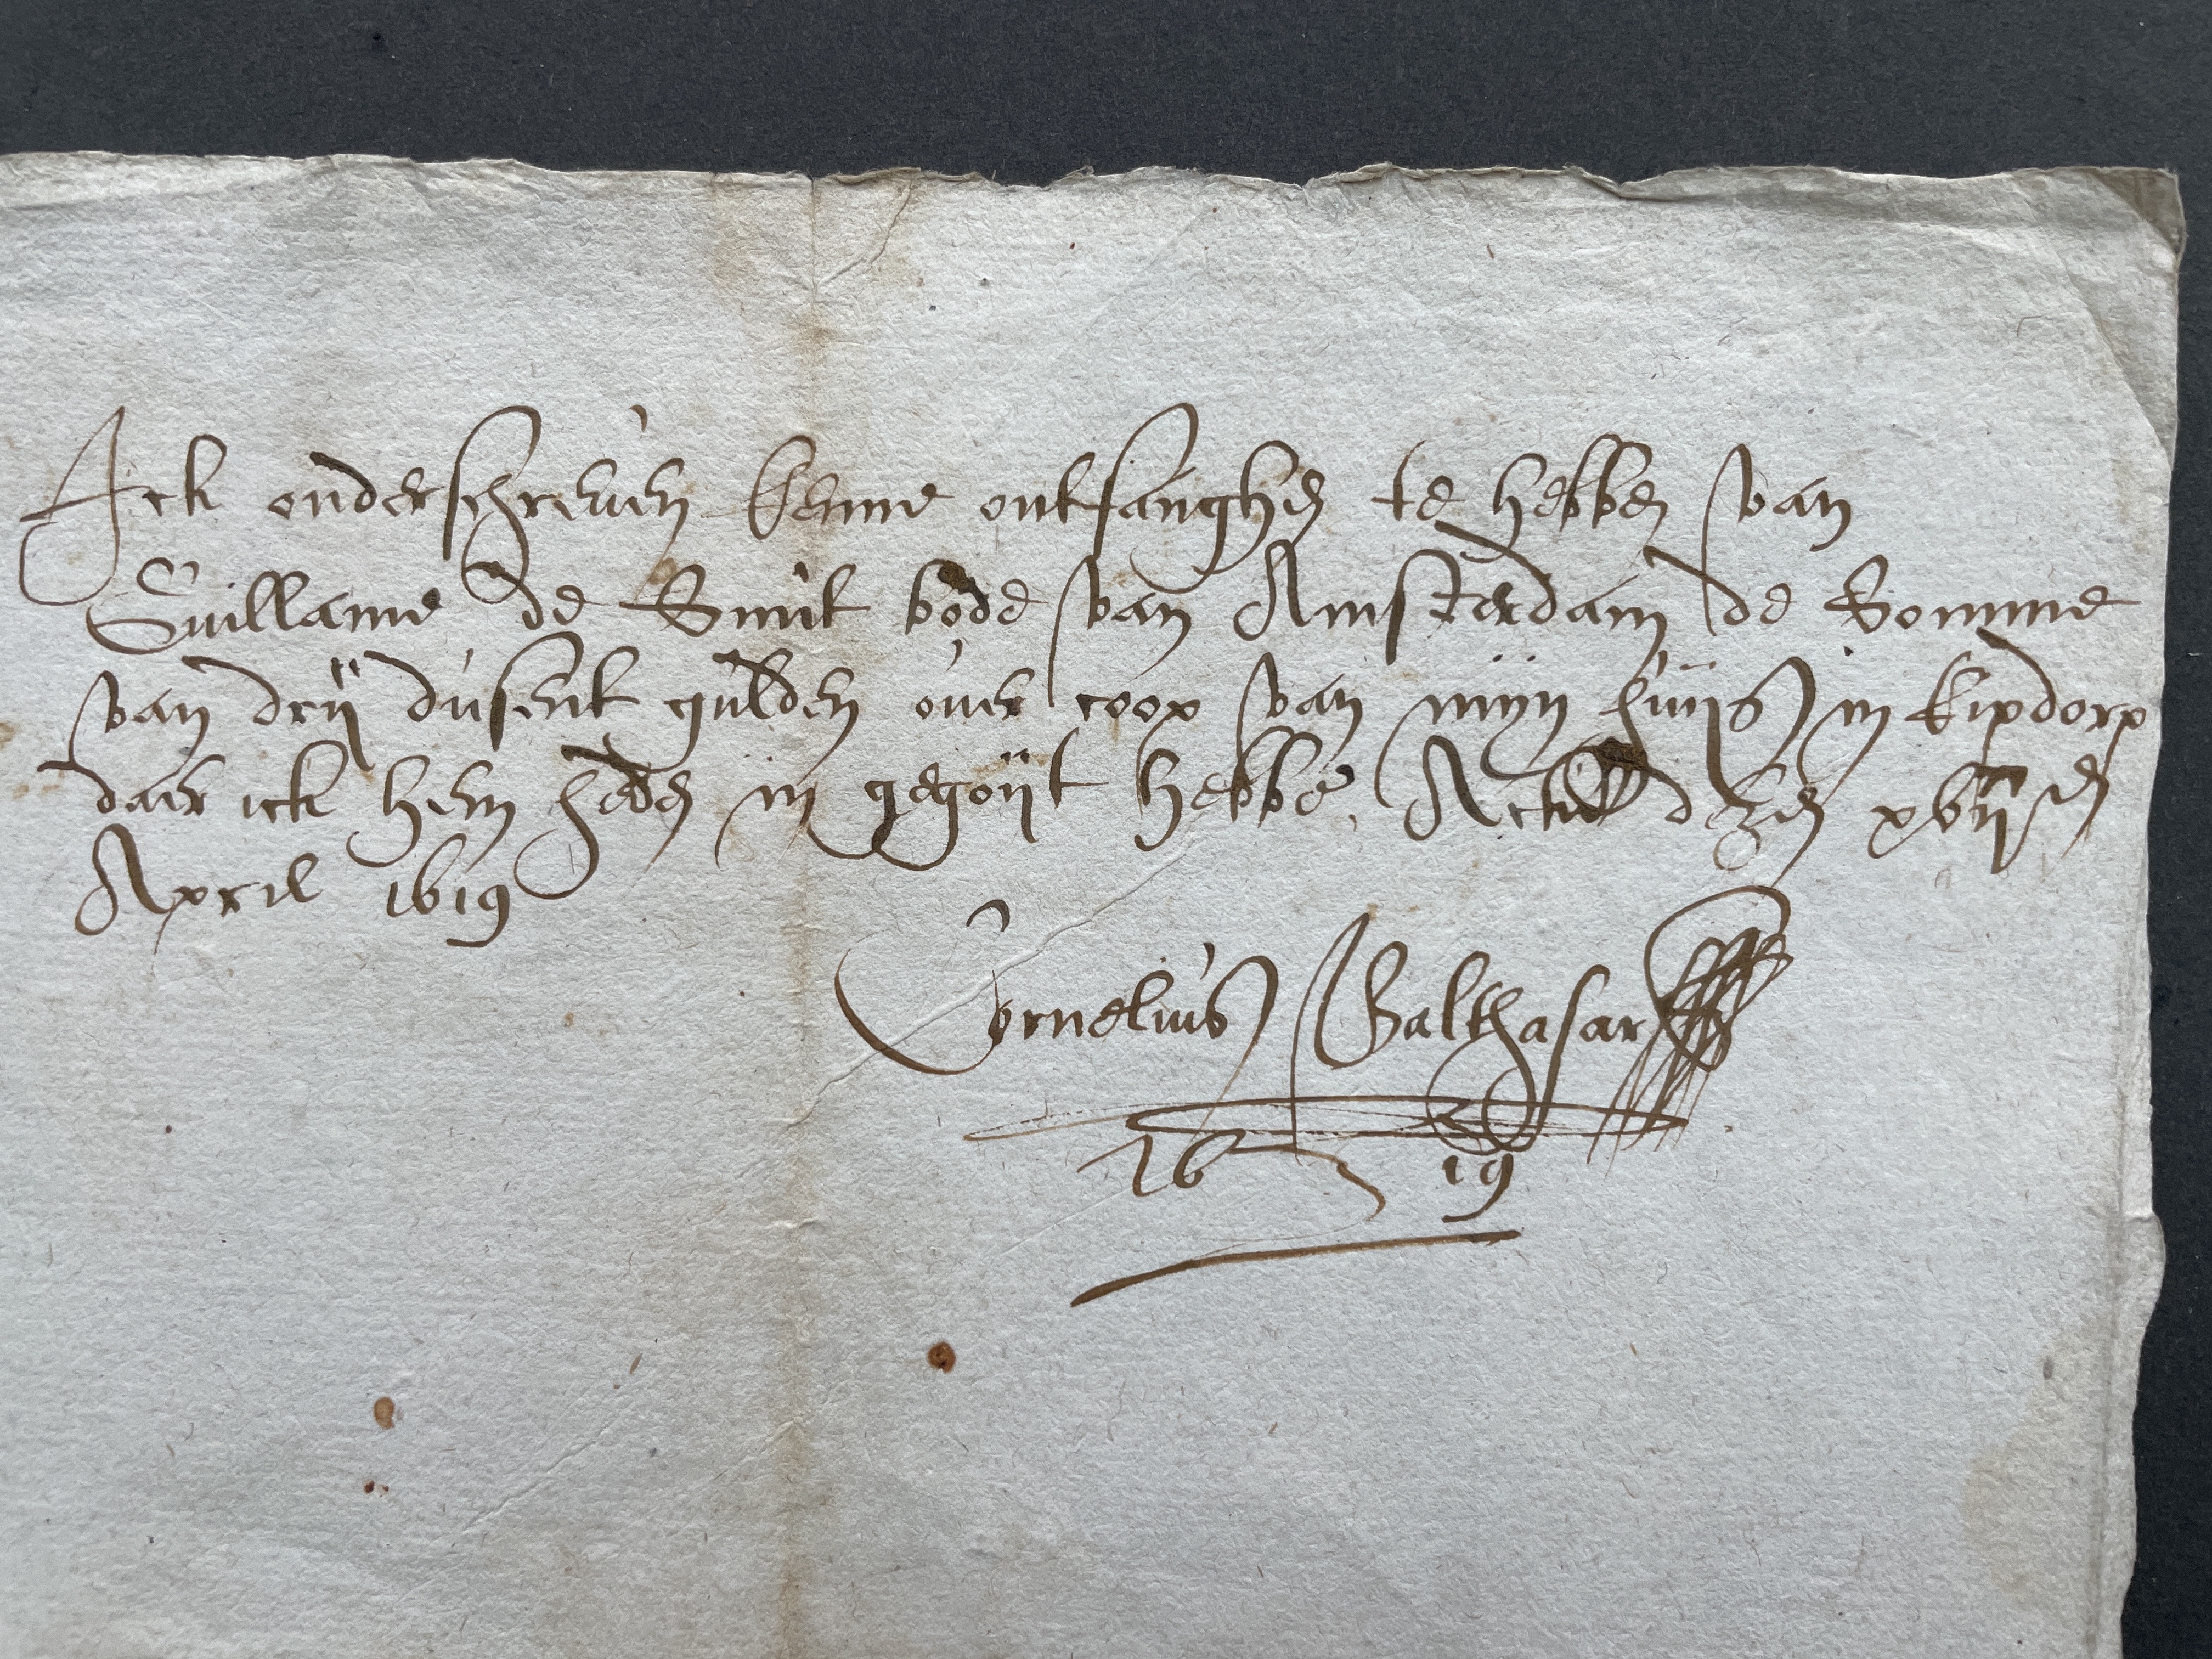 Ick onderschreven kenne ontfanghen te hebben van
Guillame de Smit bode van Amsterdam de Somme
van drij dusent gulden over coop van mijn huijs in kipdorp
daer ick hem heden in gegoijt hebbe. Actum dezen xvij en
April 1619
Cornelius Balthasar
1619